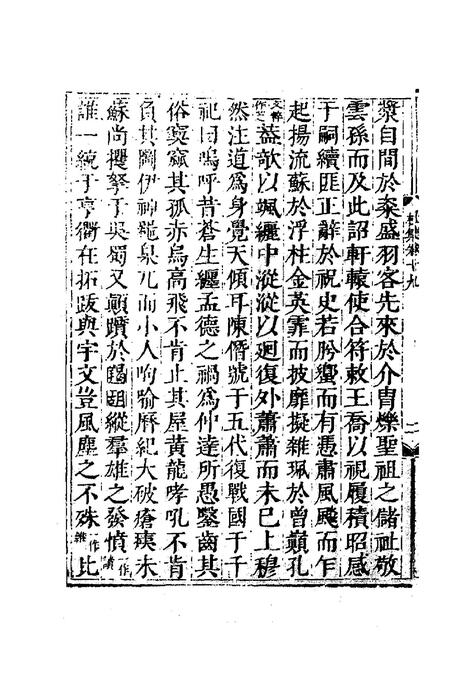 漿自間於粢盛羽客先來於介胄爍聖祖之儲祉敬
雲孫而及此詔軒轅使合符敕王喬以視履積昭感
于嗣續匪正辭於祝史若肸蠁而有憑肅風飈而乍
起揚流蘇於浮柱金英霏而披靡擬雜珮於曾巔孔
文粹作芝蓋欹以颯纚中漎漎以迴復外蕭蕭而未已上穆
然注道爲身覺天傾耳陳僭號于五代復戰國于千
祀曰嗚呼昔蒼生纏孟德之禍爲仲達所愚鑿齒其
俗窫窳其孤赤烏高飛不肯止其屋黃龍哮吼不肯
負其圖伊神器臬兀而小人呴喻曆紀大破瘡痍未
蘇尚攫拏于吳蜀又顛躓於羯胡縱羣雄之發憤一作
誰一統于亨衢在拓跋與宇文豈風塵之不殊一作雜比
杜集卷十九
二